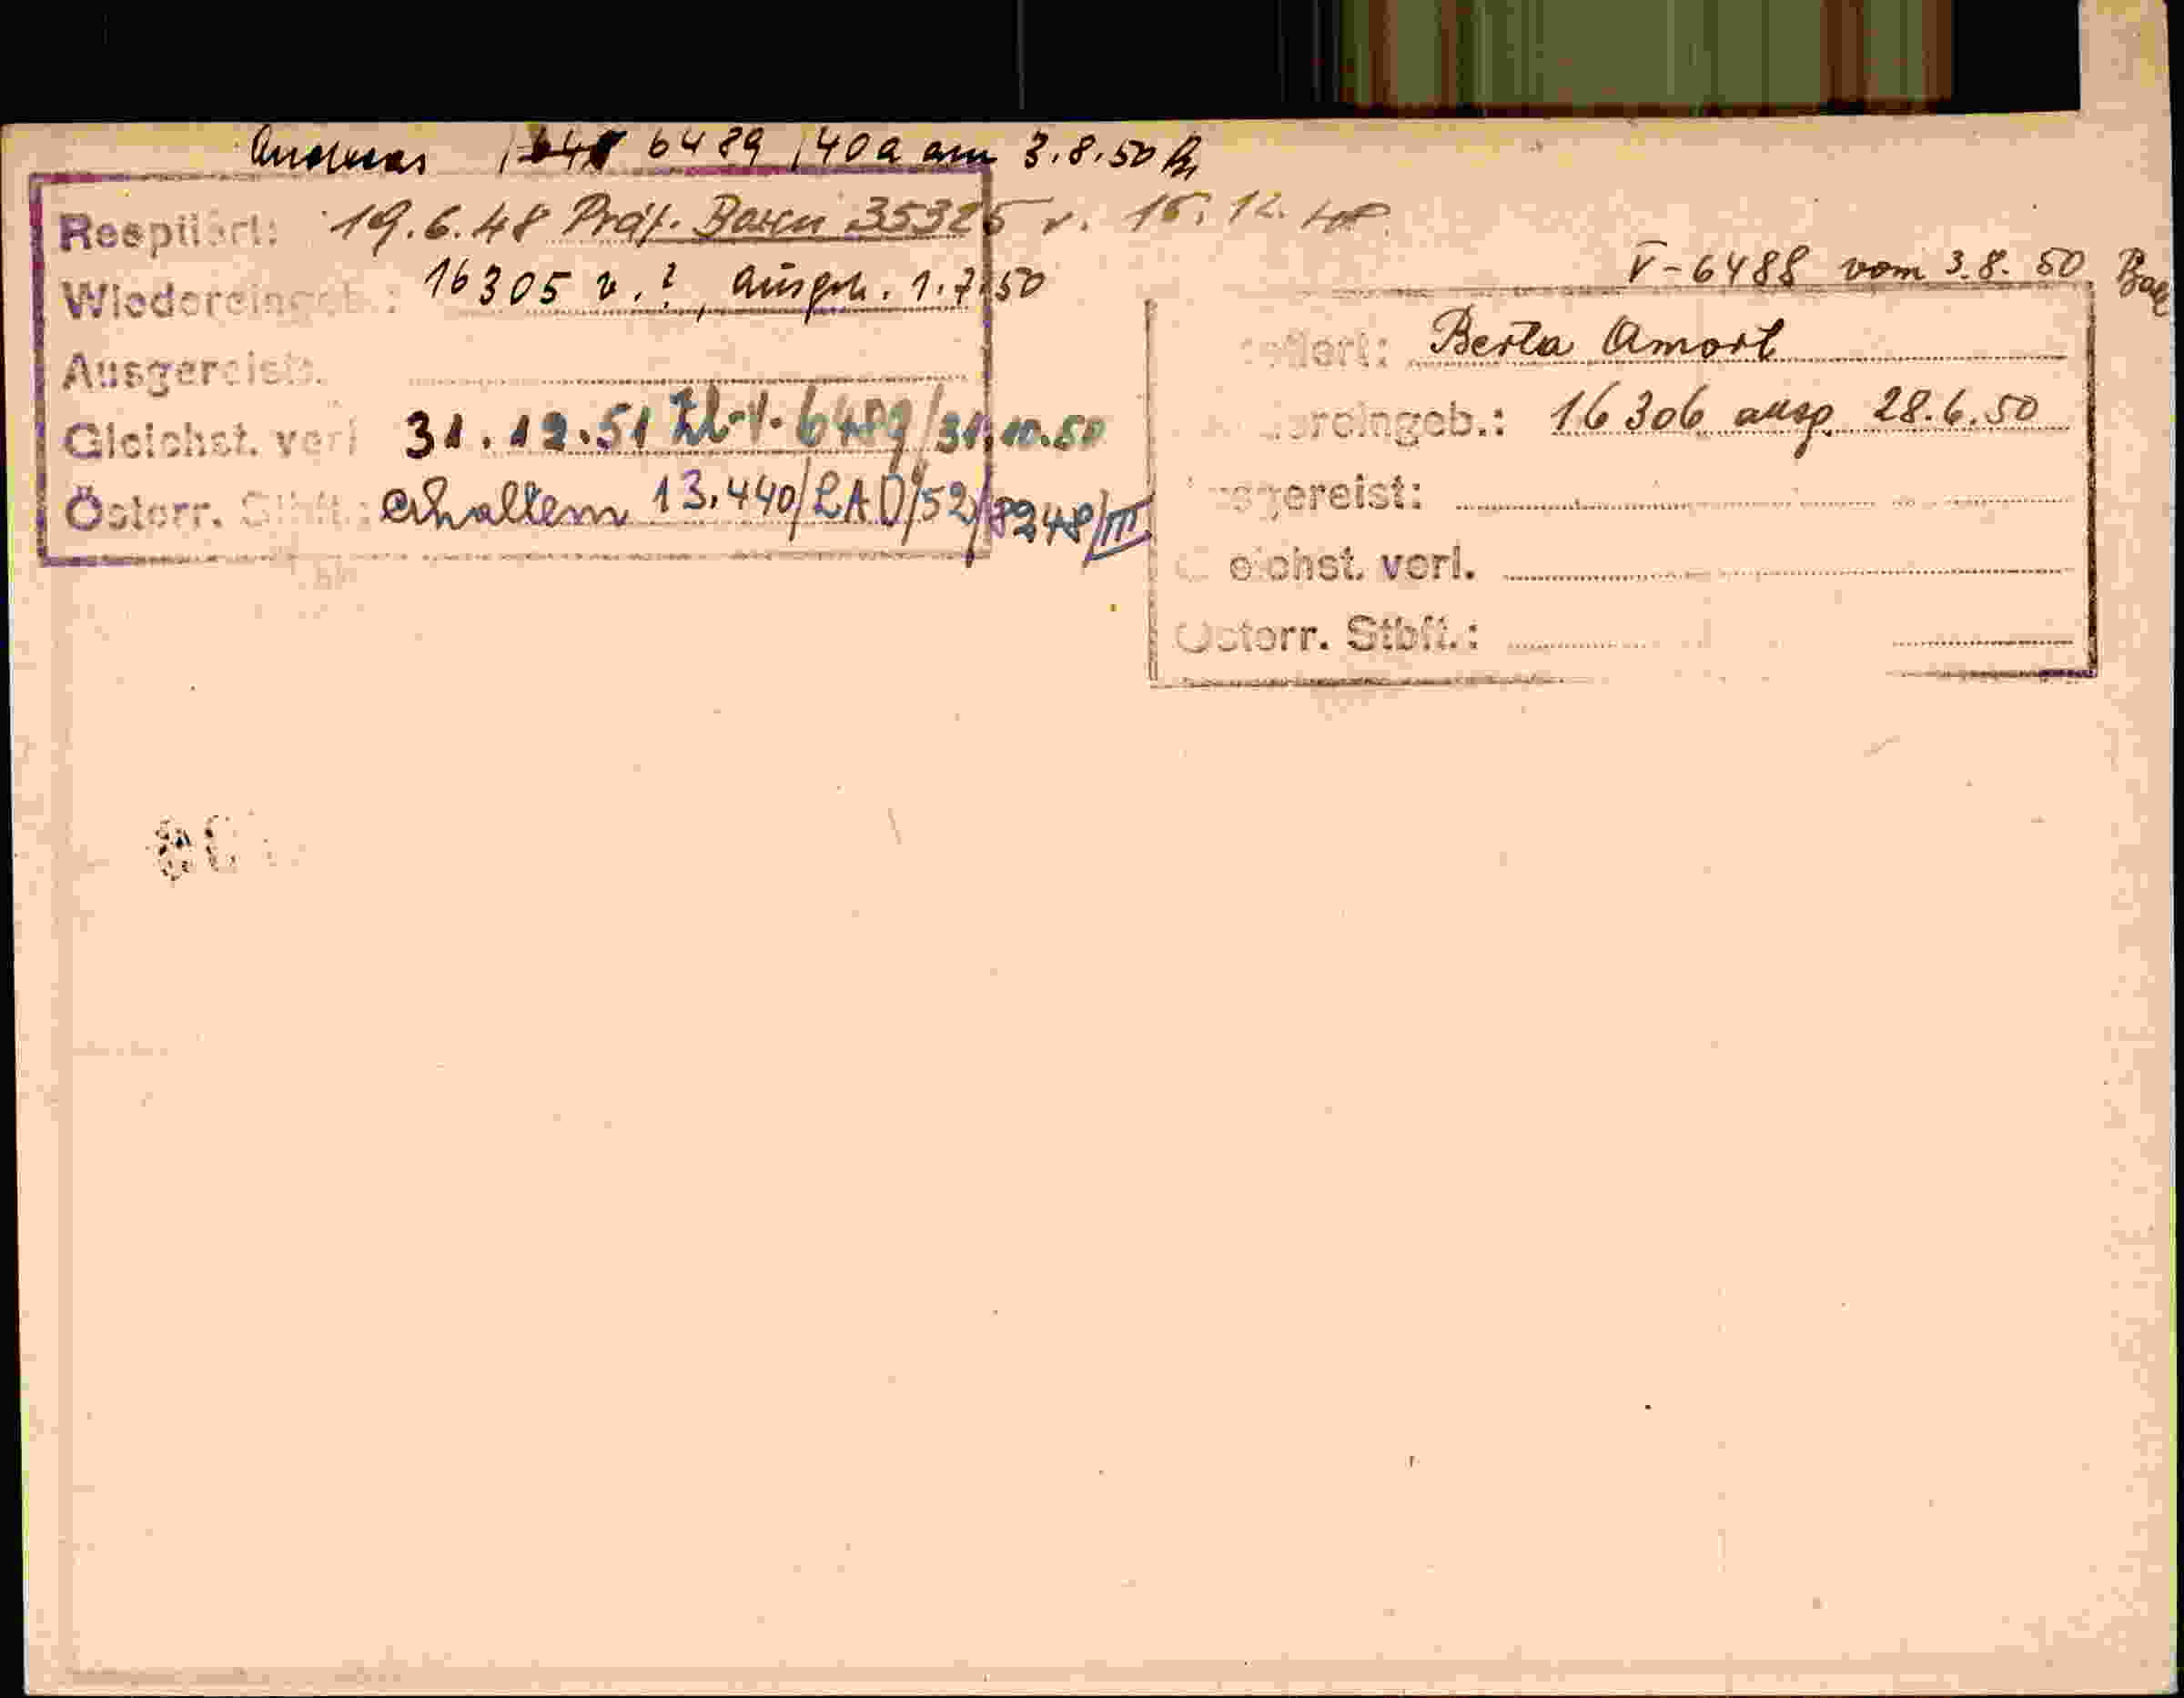 Andreas 6489 / 40 a am 3.8.50
Reoptiert: 19.6.48 Präf. Bozen 35325 v. 15.12.48
Wiedereingeb.: 16305 v. ?, ausgeh. 1.7.50
Ausgereist:
Gleichst. verl. 31.12.51 Zl. V. 6489/31.10.50
Österr. Stbft.: erhalten 13.440/LAD/52/8248/III
V-6488 vom 3.8.50
optiert: Berta Amort
ereingeb.: 16306 ausg. 28.6.50
gereist:
eichst. verl.
Österr. Stbft.: